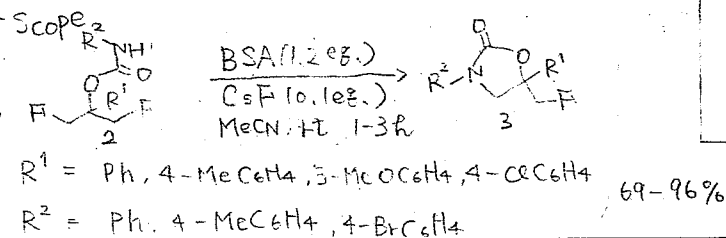 Scope
R² NH
O O
R¹
F F
2
BSA (1.2 eq.)
CsF (0.1 eq.)
MeCN, rt 1-3h
O
O R¹
R²-N
F
3
R¹ = Ph, 4-MeC6H4, 3-MeOC6H4, 4-ClC6H4
69-96%
R² = Ph, 4-MeC6H4, 4-BrC6H4